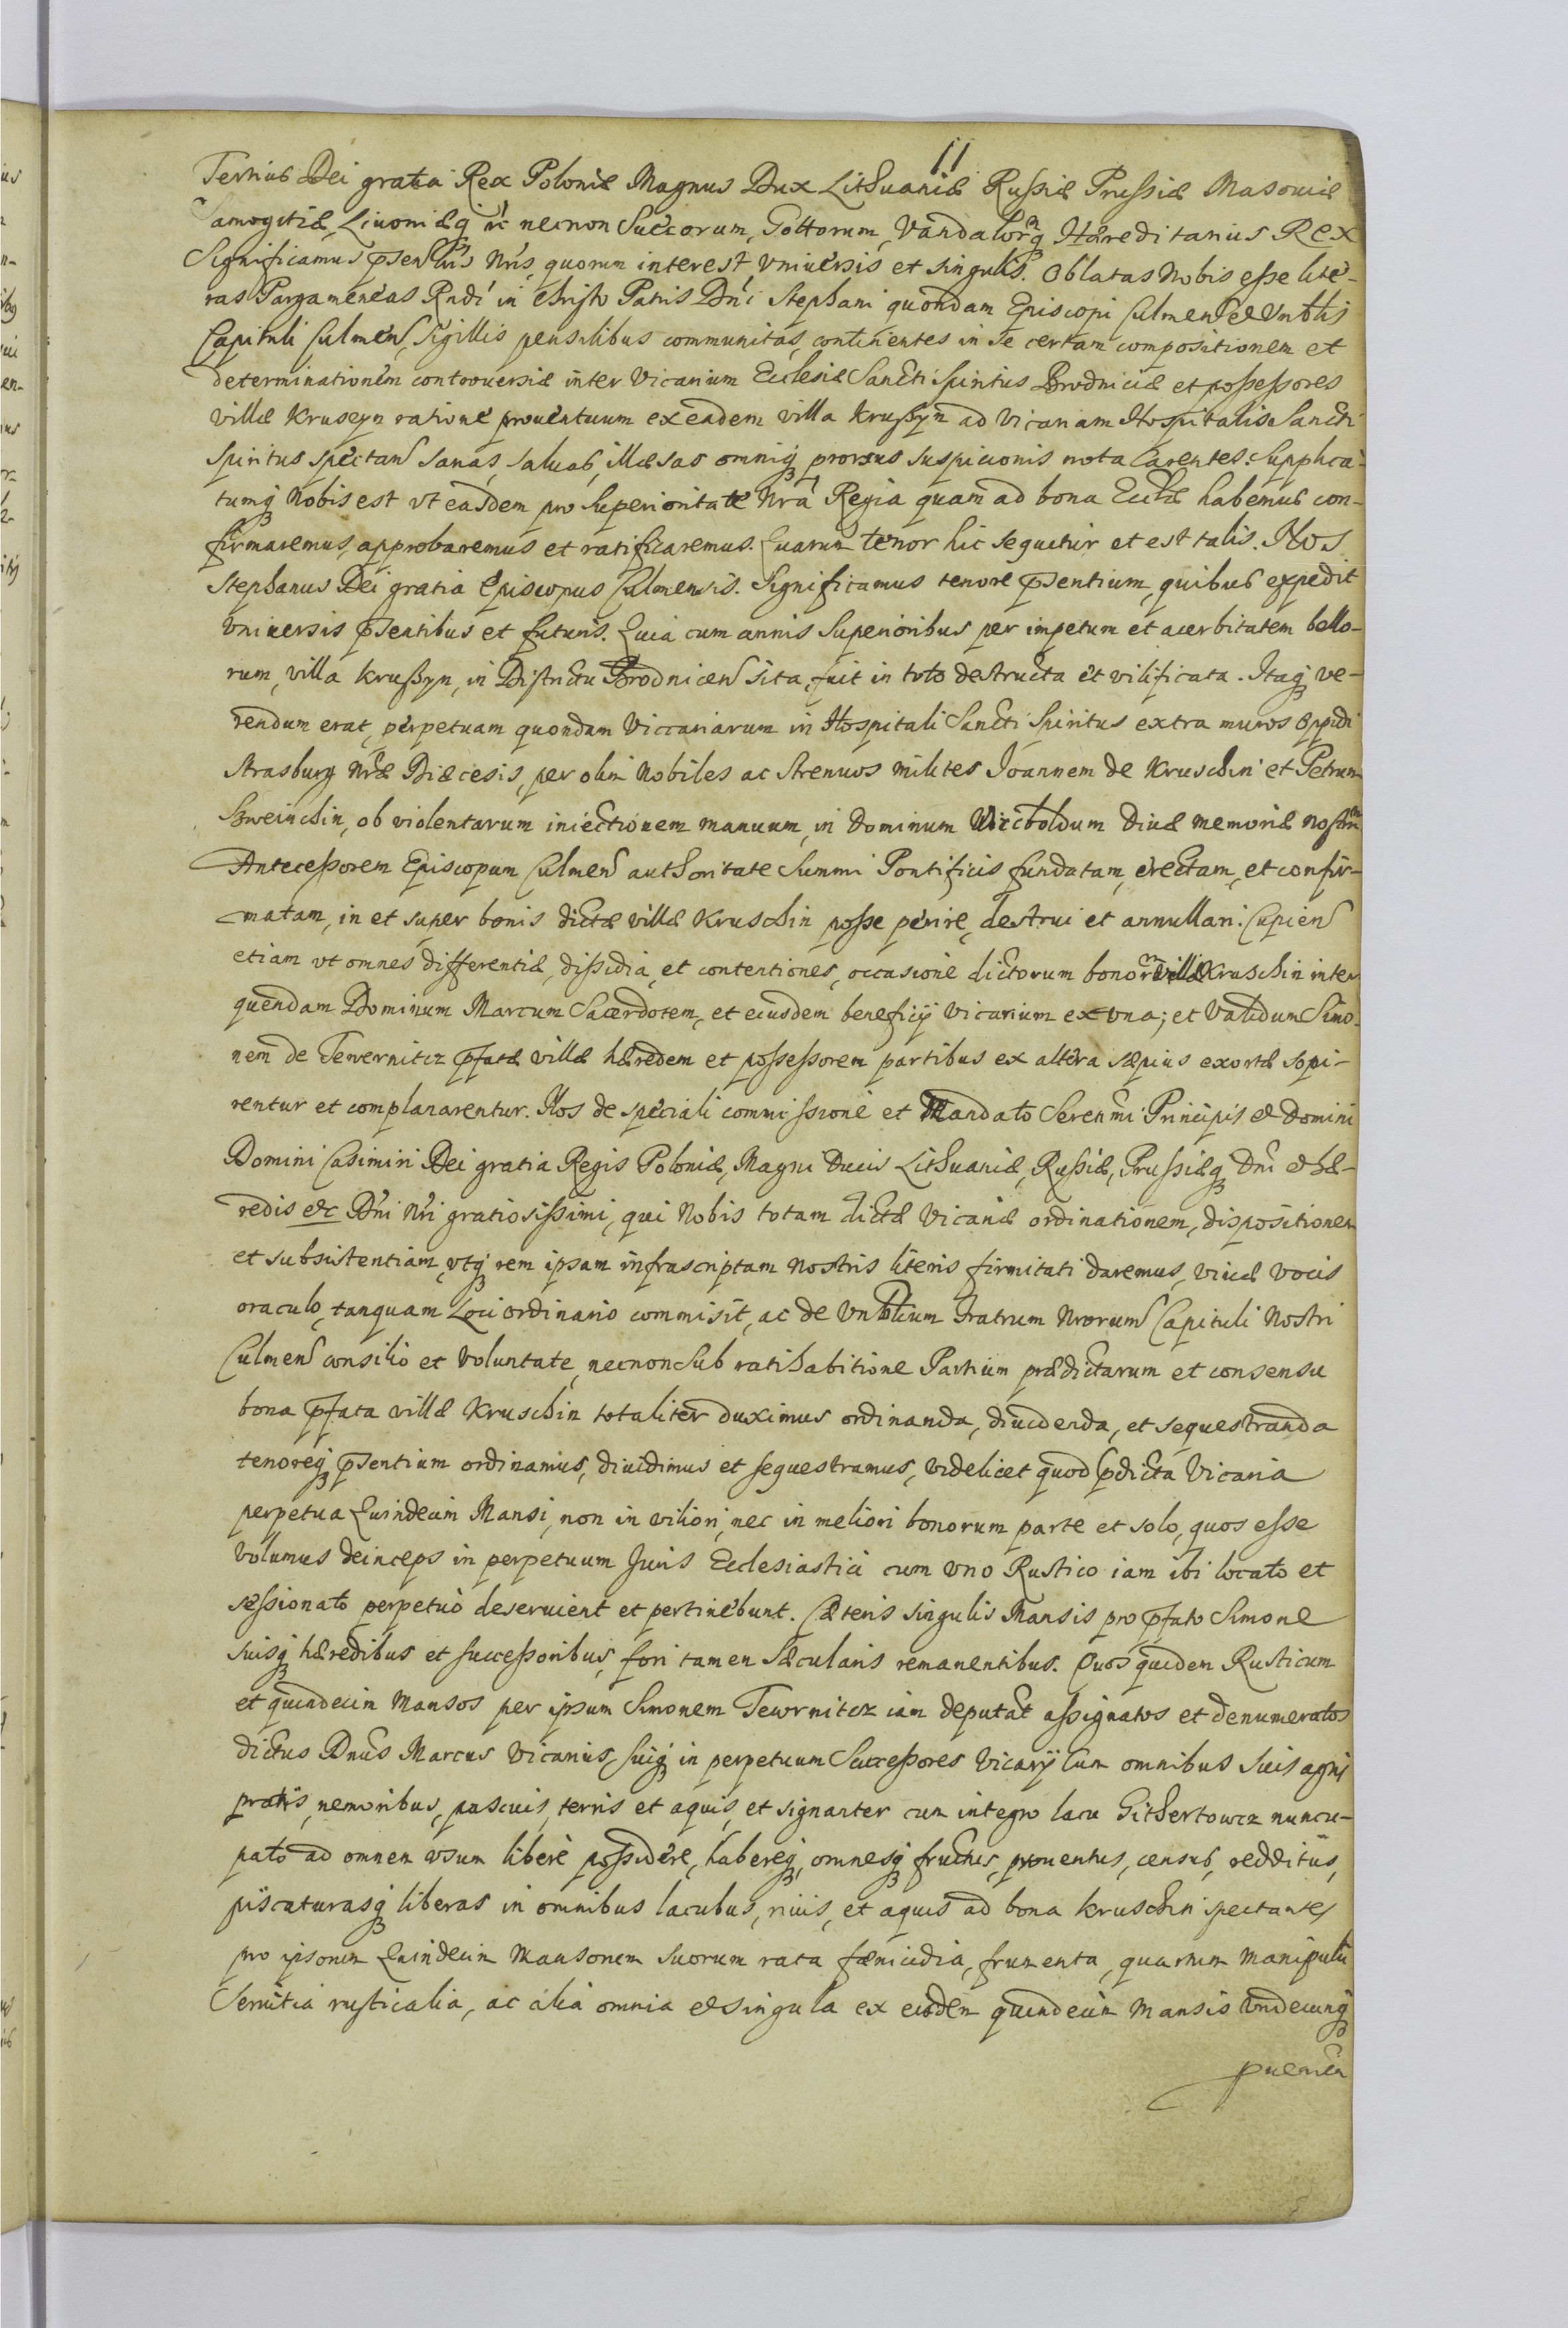 11
Tertius Dei gratia Rex Poloniæ Magnus Dux Lithuaniæ Russiæ Prussiæ Masouiæ
Samogitiæ, Liuoniæq₃ nc̃ necnon Suecorum, Gottorum, Vandalorq̃₃ Hæreditarius Rex
Significamus p̃sentbus Nr̃is, quorum interest, Vniuersis et singulis. Oblatas Nobis esse lite-
ras Pargameneas Rndi in Christo Patris Dn̄i Stephani quondam Episcopi Culmen̄ et Vnblis
Capituli Culmen̄, Sigillis pensilibus communitas, continentes in se certam compositionem et
determinationem controuersiæ inter Vicarium Ecclesiæ Sancti Spiritus Brodniciæ et possessores
villæ Krusyn ratione prouentuum ex eadem villa Krussyn ad Vicariam Hospitalis Sancti
Spiritus spectan̄ sanas, saluas, illæsas omniq₃ prorsus suspicionis nota Carentes. Supplica-
tumq₃ Nobis est vt easdem pro Superioritate Nrã Regia quam ad bona Eccl̄iæ habemus con-
firmaremus, approbaremus et ratificaremus. Quarum tenor hic sequitur et est talis. Nos
Stephanus Dei gratia Episcopus Culmensis. Significamus tenore p̃sentium, quibus expedit
Vniuersis p̃sentibus et futuris. Quia cum annis Superioribus per impetum et acerbitatem bello-
rum, villa Krussyn, in Districtu Brodnicen̄ sita, fuit in toto destructa et vilificata. Itaq₃ ve-
rendum erat, perpetuam quondam Viccariarum in Hospitali Sancti Spiritus extra muros Oppidi
Strasburg Nr̃æ Diæcesis, per olim Nobiles ac Strenuos milites Joannem de Kruschin et Petrum
Szweinchin, ob violentarum iniectionem manuum, in Dominum Wicboldum Diuæ memoriæ nostrm̃
Antecessorem Episcopum Culmen̄ authoritate Summi Pontificis fundatam, erectam, et confir-
matam, in et super bonis dictæ villæ Kruschin posse perire, destrui et annullari. Cupien̄
etiam vt omnes differentiæ, dissidia, et contentiones, occasione dictorum bonorm̃ villæ Kruschin inter
quendam Dominum Marcum Sacerdotem, et eiusdem beneficij Vicarium ex vna; et Validum Simo-
nem de Tewernitcz p̃fatæ villæ hæredem et possessorem partibus ex altera sæpius exortæ sopi-
rentur et complanarentur. Nos de speciali commissione et Mandato Serenm̃i Principis et Domini
Domini Casimiri Dei gratia Regis Poloniæ, Magni Ducis Lithuaniæ, Russiæ, Prussiæq₃ Dn̄i et hæ-
redis etc Dn̄i Nr̃i gratiosissimi, qui Nobis totam dictæ Vicariæ ordinationem, dispositionem
et subsistentiam, vtq₃ rem ipsam infrascriptam nostris literis firmitati daremus, viuæ vocis
oraculo, tanquam Loci ordinario commisit, ac de Vnblium Fratrum Nrorum̄ Capituli Nostri
Culmen̄ consilio et Voluntate, necnon Sub ratihabitione Partium prædictarum et consensu
bona p̃fata villæ Kruschin totaliter duximus ordinanda, diuidenda, et sequestranda
tenoreq₃ p̃sentium ordinamus, diuidimus et sequestramus, videlicet quod p̃dicta Vicaria
perpetua Quindecim Mansi, non in viliori, nec in meliori bonorum parte et solo, quos esse
Volumus deinceps in perpetuum Juris Ecclesiastici cum vno Rustico iam ibi locato et
sessionato perpetuò deseruient et pertinebunt. Cæteris singulis Mansis pro p̃fato Simone
suisq₃ hæredibus et successoribus, fori tamen sæcularis remanentibus. Quos quidem Rusticum
et quindecim Mansos per ipsum Simonem Tewrnitcz iam deputat̄ assignatos et denumeratos
dictus Dnūs Marcus Vicarius, suiq₃ in perpetuum Successores Vicarij Cum omnibus suis agris
pratis, nemoribus, pascuis, terris et aquis, et signanter cum integro lacu Githertowcz nuncu-
pato ad omnem vsum liberè possidère, habereq₃, omnesq₃ fructus, prouentus, census, redditus,
piscaturasq₃ liberas in omnibus lacubus, riuis, et aquis ad bona Kruschin spectantes
pro ipsorum Quindecim Mansorum suorum rata fænicidia, frumenta, quarum manipuli
Seruitia rusticalia, ac alia omnia et singula ex eisdem quindecim Mansis Vndecunq₃
puenien̄